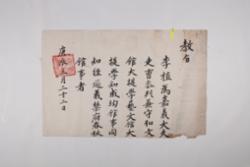 教旨
李植爲嘉義大夫
吏曹參判兼守弘文
館大提學藝文館大
提學知成均館事同
知經筵義禁府春秋
館事者
三月二十二日